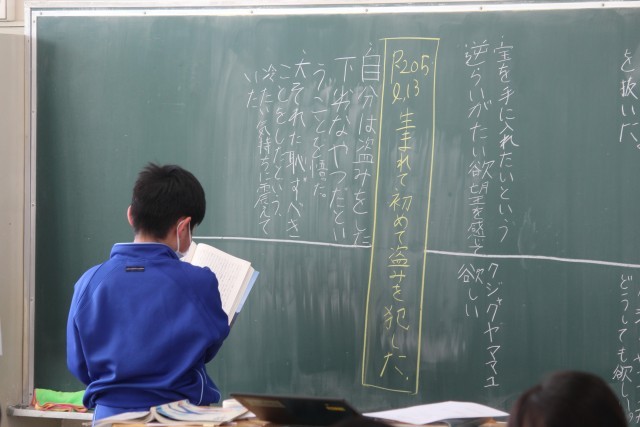 を抜いた。
どうしても欲しい
宝を手に入れたいという
逆らいがたい欲望を感じて
クジャクヤママユ
欲しい
P205
l.13
生まれて初めて盗みを犯した、
自分は盗みをした
下劣なやつだとい
うことを悟た
大それた恥ずべき
ことをしたという、
冷たい気持ちに震えて
いた